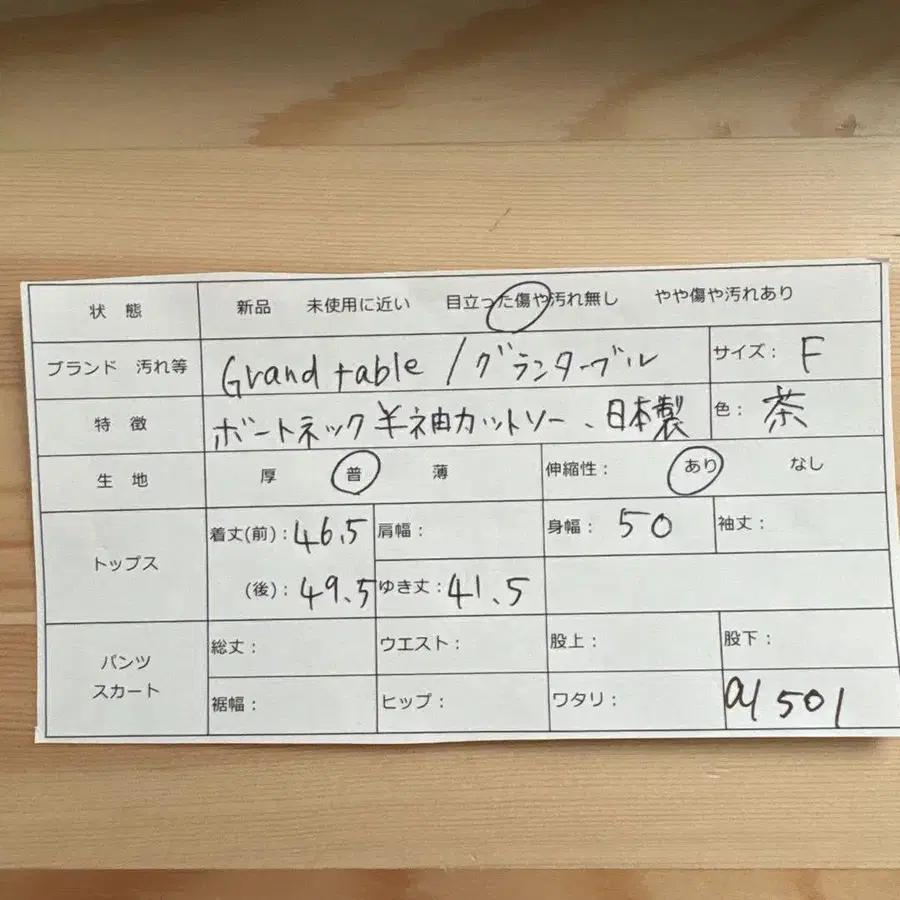 状態 新品 未使用に近い 目立った傷や汚れ無し やや傷や汚れあり
ブランド 汚れ等 Grand table / グランターブル サイズ: F
特徴 ボートネック半袖カットソー、日本製 色: 茶
生地 厚 普 薄 伸縮性: あり なし
トップス 着丈(前): 46.5 肩幅: 身幅: 50 袖丈:
(後): 49.5 ゆき丈: 41.5
パンツ スカート 総丈: ウエスト: 股上: 股下:
裾幅: ヒップ: ワタリ: a1501